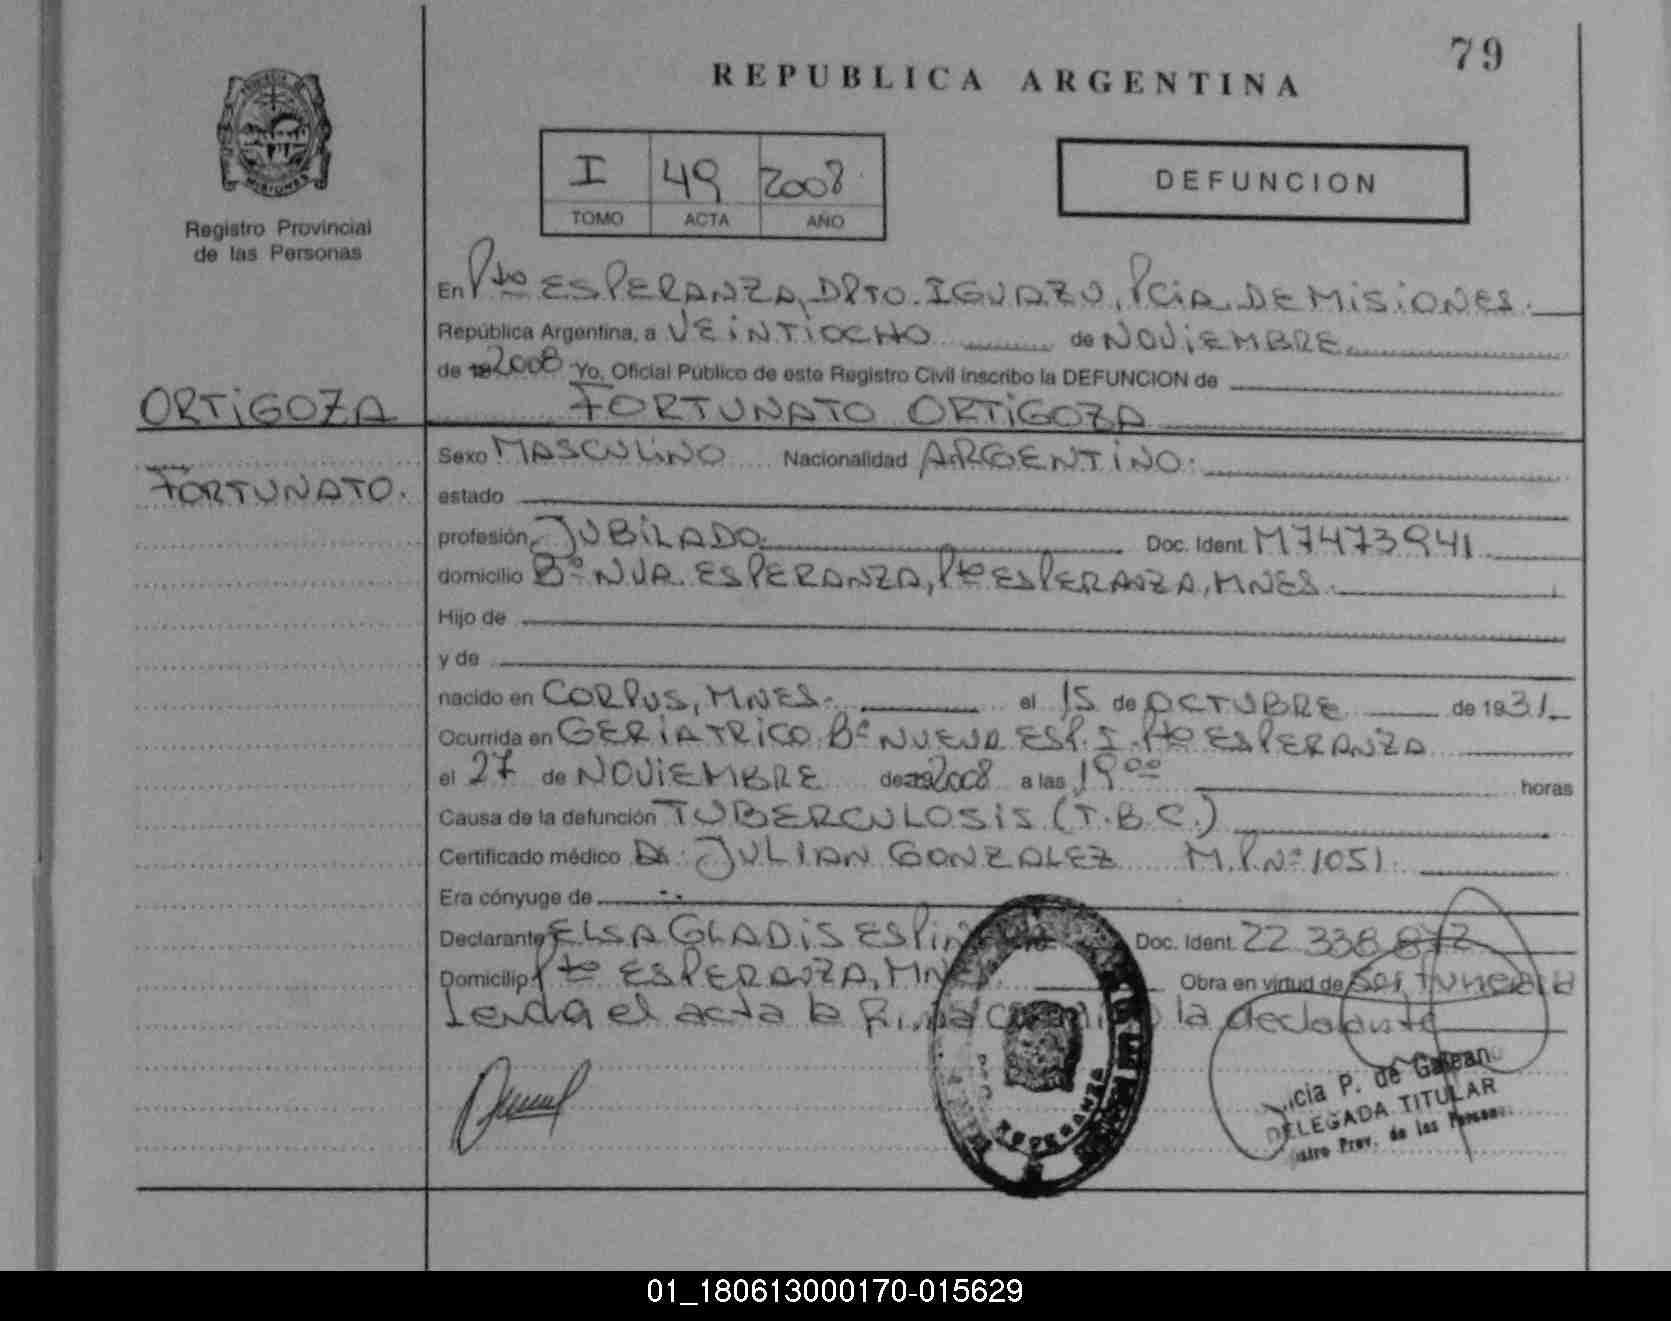 79
REPUBLICA ARGENTINA
MISIONES
Registro Provincial
de las Personas
I 49 2008
TOMO ACTA AÑO
DEFUNCION
En Pto ESPERANZA, DPTO. IGUAZU, PCIA. DE MISIONES.
República Argentina, a VEINTIOCHO de NOVIEMBRE
de 19 2008 Yo, Oficial Público de este Registro Civil inscribo la DEFUNCION de
ORTIGOZA FORTUNATO ORTIGOZA
Sexo MASCULINO Nacionalidad ARGENTINO.
FORTUNATO. estado
profesión JUBILADO. Doc. Ident. M7473941
domicilio Bº NVA. ESPERANZA, Pto ESPERANZA, MNES.
Hijo de
y de
nacido en CORPUS, MNES. el 15 de OCTUBRE de 1931
Ocurrida en GERIATRICO Bº NUEVA ESP. I. Pto ESPERANZA
el 27 de NOVIEMBRE de 2008 a las 19 00 horas
Causa de la defunción TUBERCULOSIS (T.B.C.)
Certificado médico Dr. JULIAN GONZALEZ M.P.Nº 1051.
Era cónyuge de
Declarante ELSA GLADIS Doc. Ident. 22.338.872
Domicilio Pto ESPERANZA, MNES. Obra en virtud de Ser. Funeraria
Leída el acta la firma conmigo la declarante
P. de Galeano
DELEGADA TITULAR
Prov. de las Personas
ESPERANZA
01_180613000170-015629